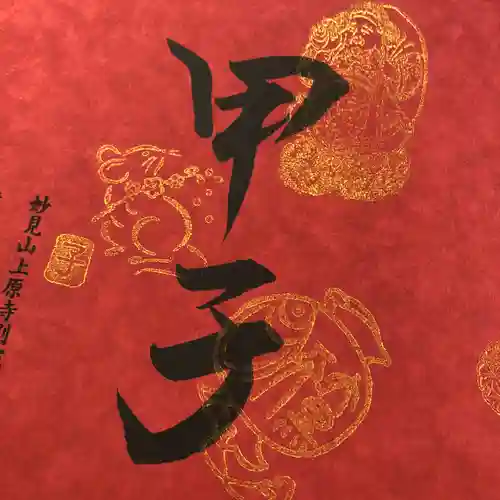 甲子
妙見山上原寺別
子